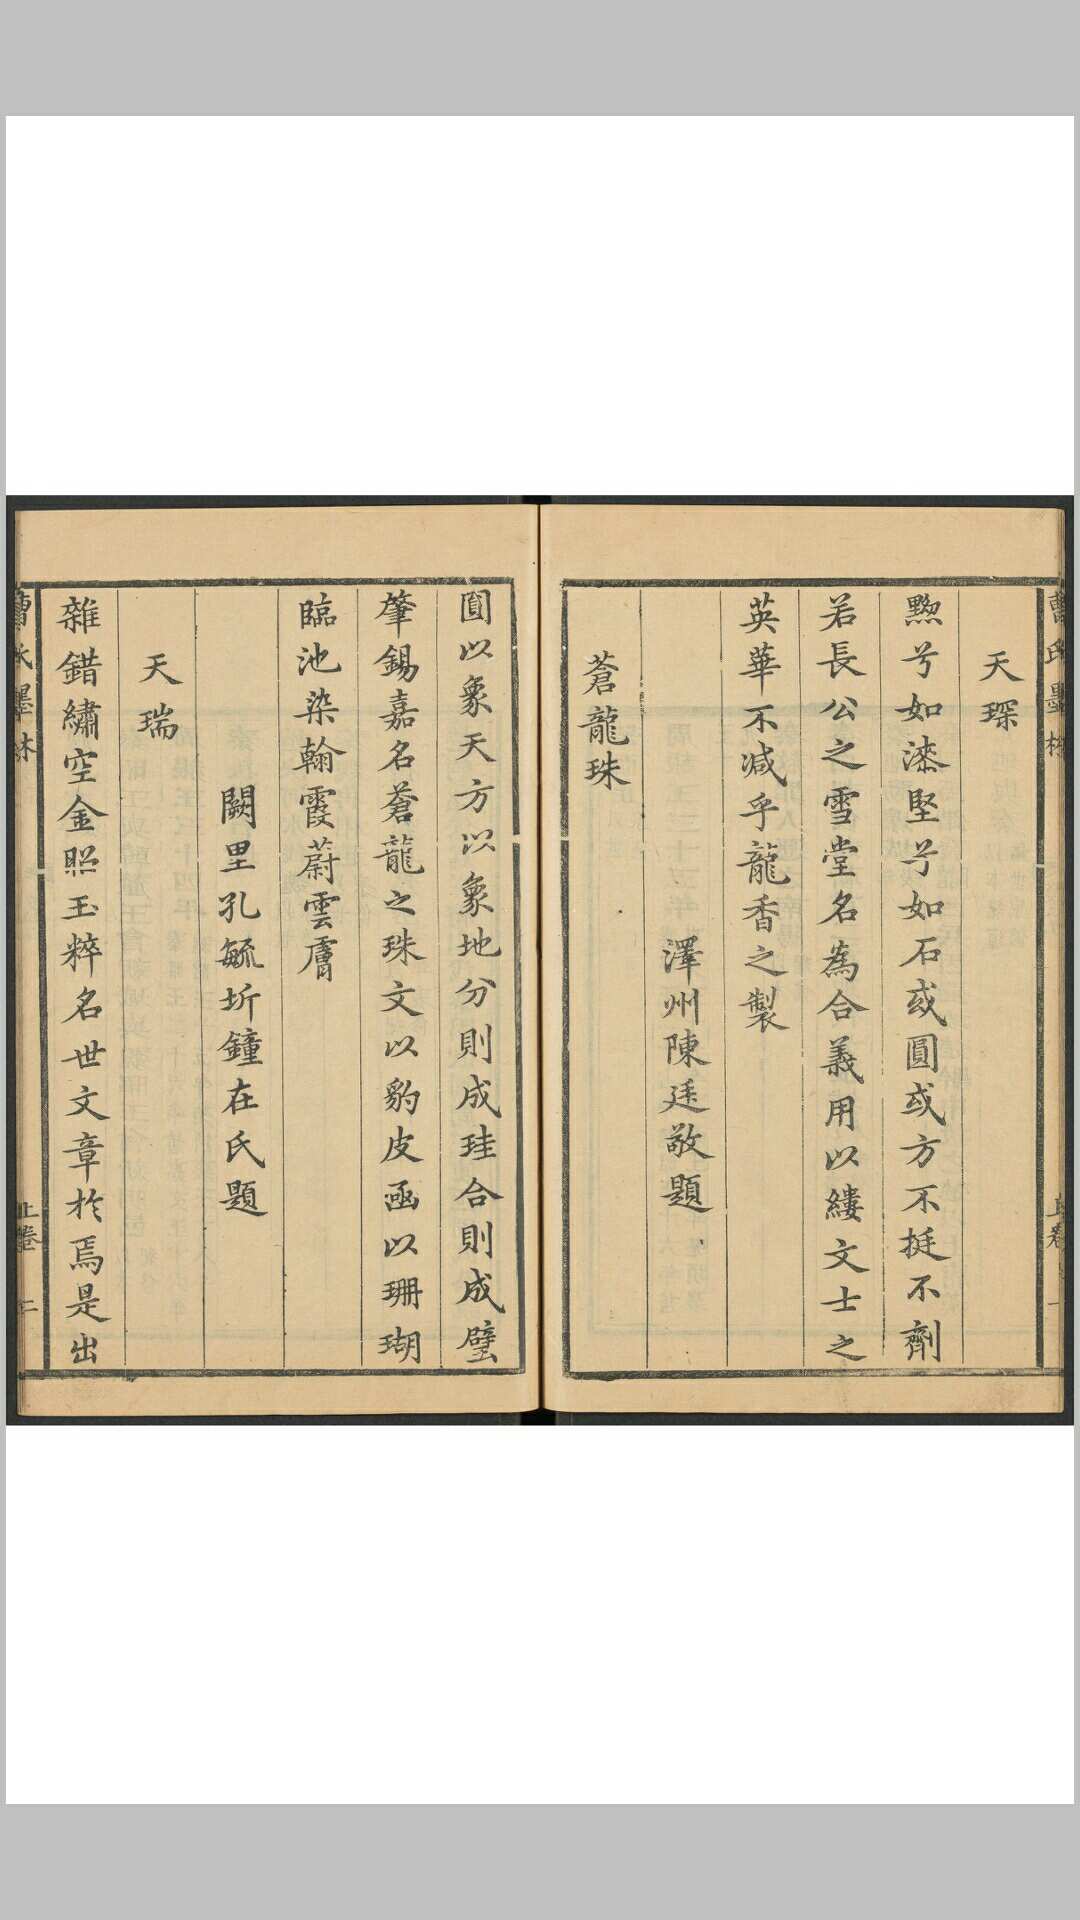 曹氏墨林
上卷
一
天琛
黝兮如漆堅兮如石或圓或方不挺不劑
若長公之雪堂名為合義用以縷文士之
英華不减乎龍香之製
澤州陳廷敬題
蒼龍珠
圓以象天方以象地分則成珪合則成璧
肇錫嘉名蒼龍之珠文以豹皮函以珊瑚
臨池染翰霞蔚雲膚
闕里孔毓圻鐘在氏題
天瑞
雜錯繡空金熙玉粹名世文章於焉是出
曹氏墨林
上卷
二